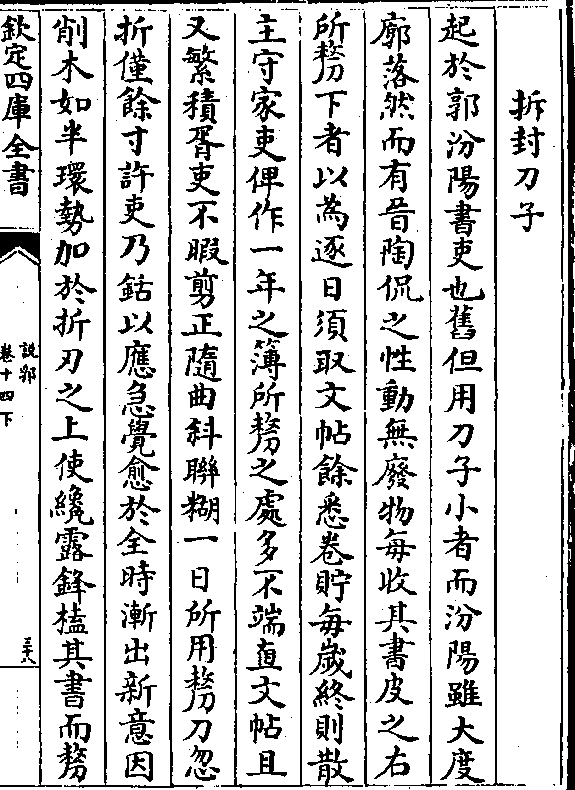 拆封刀子
起於郭汾陽書吏也舊但用刀子小者而汾陽雖大度
廓落然而有晉陶侃之性動無廢物每收其書皮之右
所剺下者以為逐日須取文帖餘悉卷貯每歲終則散
主守家吏俾作一年之簿所剺之處多不端直文帖且
又繁積胥吏不暇剪正隨曲斜聯糊一日所用剺刀忽
折僅餘寸許吏乃銛以應急覺愈於全時漸出新意因
削木如半環勢加於折刃之上使纔露鋒榼其書而剺
欽定四庫全書
說郛
卷十四下
三十八